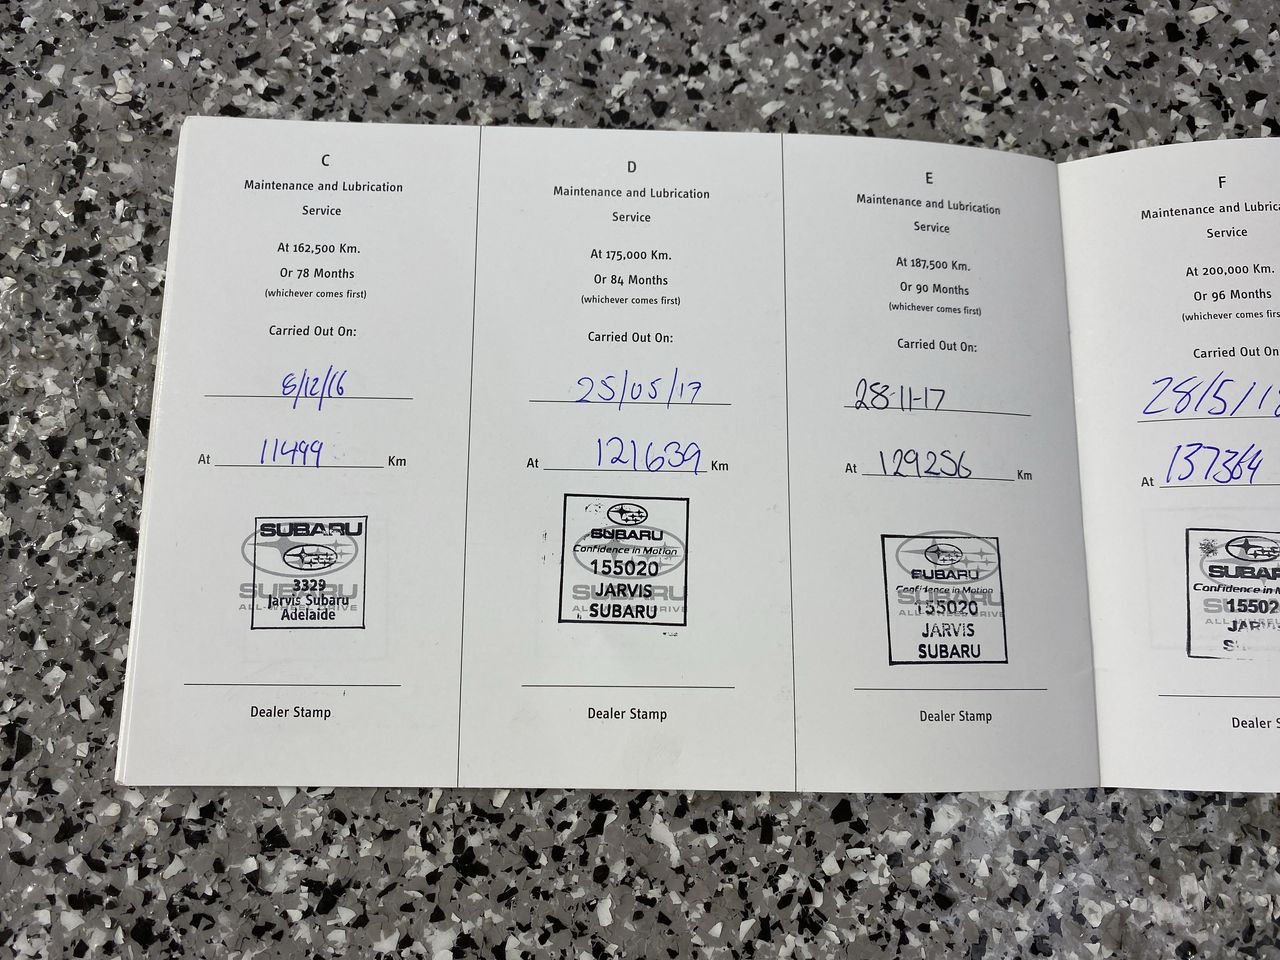 C
Maintenance and Lubrication
Service
At 162,500 Km.
Or 78 Months
(whichever comes first)
Carried Out On:
8/12/16
At 11499 Km
SUBARU
3329
Jarvis Subaru
Adelaide
SUBARU
ALL-WHEEL DRIVE
Dealer Stamp
D
Maintenance and Lubrication
Service
At 175,000 Km.
Or 84 Months
(whichever comes first)
Carried Out On:
25/05/17
At 121639 Km
SUBARU
Confidence in Motion
155020
JARVIS
SUBARU
SUBARU
ALL-WHEEL DRIVE
Dealer Stamp
E
Maintenance and Lubrication
Service
At 187,500 Km.
Or 90 Months
(whichever comes first)
Carried Out On:
28-11-17
At 129256 Km
SUBARU
Confidence in Motion
155020
JARVIS
SUBARU
SUBARU
ALL-WHEEL DRIVE
Dealer Stamp
F
Maintenance and Lubrica
Service
At 200,000 Km.
Or 96 Months
(whichever comes firs
Carried Out On
28/5/18
At 137364
SUBAR
Confidence in M
15502
JAR
S
Dealer S